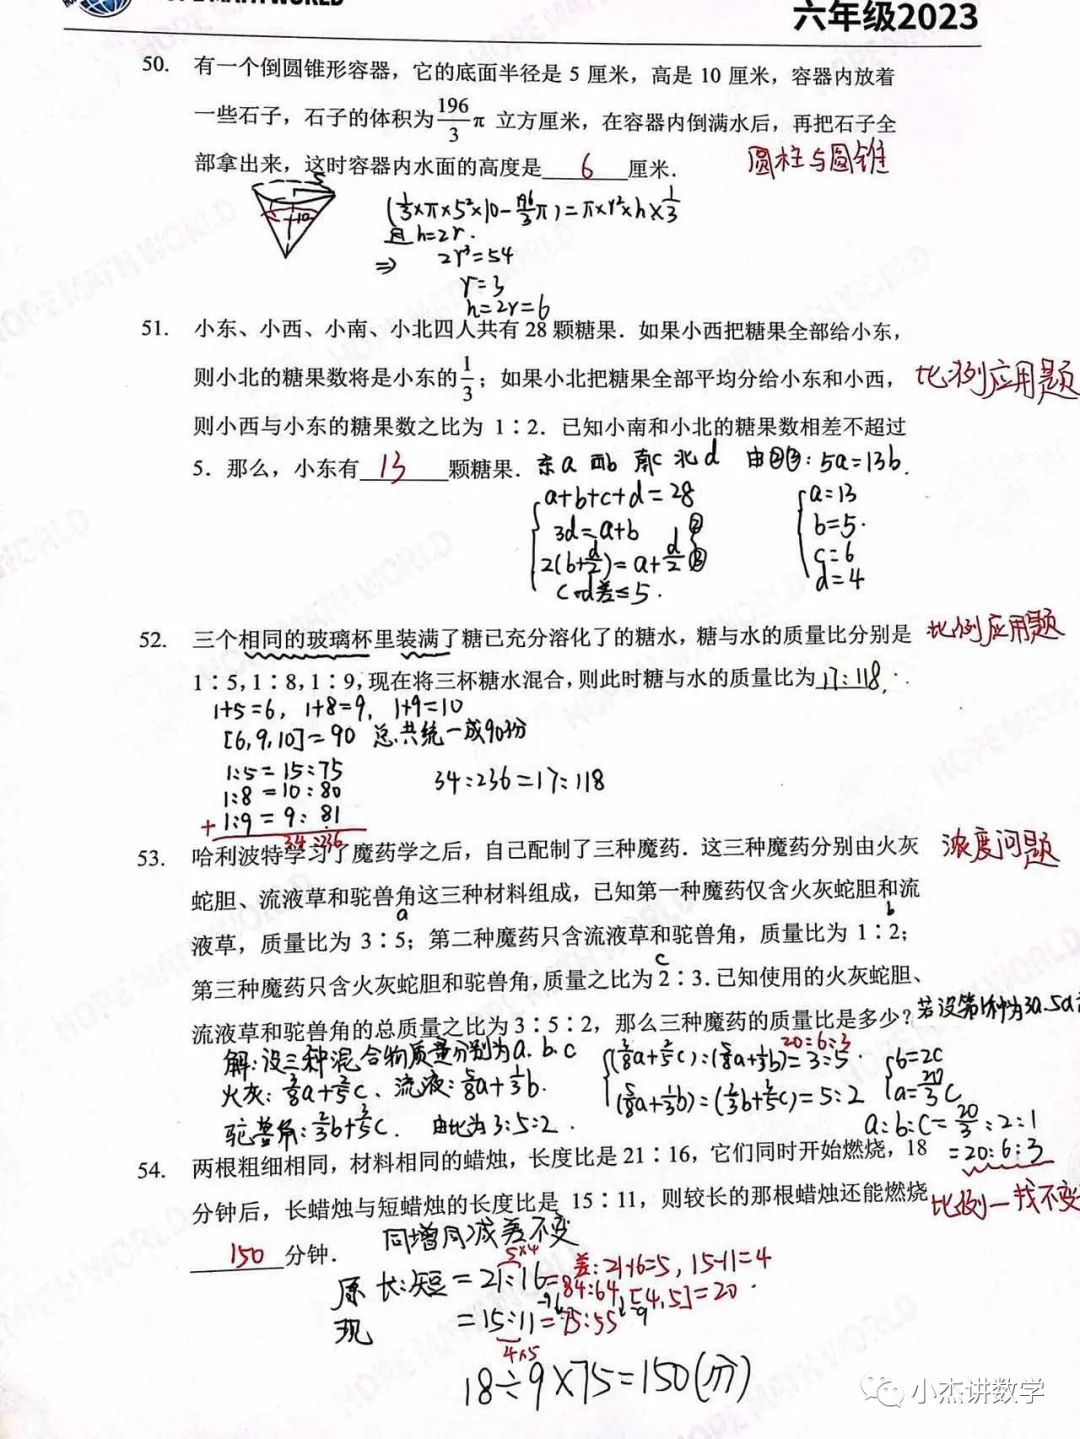 六年级2023
50. 有一个倒圆锥形容器，它的底面半径是 5 厘米，高是 10 厘米，容器内放着
一些石子，石子的体积为 196/3 π 立方厘米，在容器内倒满水后，再把石子全
部拿出来，这时容器内水面的高度是 6 厘米．
圆柱与圆锥
5
10
(1/3×π×5²×10－196/3π)＝π×r²×h×1/3
且 h=2r.
⇒ 2r³=54
r=3
h=2r=6
51. 小东、小西、小南、小北四人共有 28 颗糖果．如果小西把糖果全部给小东，
则小北的糖果数将是小东的 1/3；如果小北把糖果全部平均分给小东和小西，
比例应用题
则小西与小东的糖果数之比为 1∶2．已知小南和小北的糖果数相差不超过
5．那么，小东有 13 颗糖果．
东a 西b 南c 北d 由②③: 5a=13b.
a+b+c+d=28
3d=a+b ②
2(b+d/2)=a+d/2 ③
c d差≤5.
a=13
b=5.
c=6
d=4
52. 三个相同的玻璃杯里装满了糖已充分溶化了的糖水，糖与水的质量比分别是
比例应用题
1∶5，1∶8，1∶9，现在将三杯糖水混合，则此时糖与水的质量比为 17:118．
1+5=6, 1+8=9, 1+9=10
[6,9,10]=90 总共统一成90份
1:5=15:75
1:8=10:80
+1:9=9:81
34:236
34:236=17:118
53. 哈利波特学习了魔药学之后，自己配制了三种魔药．这三种魔药分别由火灰
浓度问题
蛇胆、流液草和驼兽角这三种材料组成，已知第一种魔药仅含火灰蛇胆和流
a
b
液草，质量比为 3∶5；第二种魔药只含流液草和驼兽角，质量比为 1∶2；
c
第三种魔药只含火灰蛇胆和驼兽角，质量之比为 2∶3．已知使用的火灰蛇胆、
流液草和驼兽角的总质量之比为 3∶5∶2，那么三种魔药的质量比是多少？
若设第1种为3a.5a
20:6:3
解:设三种混合物质量分别为a.b.c
火灰:3/8a+2/5c. 流液:5/8a+1/3b.
驼兽角:2/3b+3/5c. 由比为3:5:2.
(3/8a+2/5c):(5/8a+1/3b)=3:5.
(5/8a+1/3b)=(2/3b+3/5c)=5:2
b=2c
a=20/3c
a:b:c=20/3:2:1
=20:6:3
54. 两根粗细相同，材料相同的蜡烛，长度比是 21∶16，它们同时开始燃烧，18
分钟后，长蜡烛与短蜡烛的长度比是 15∶11，则较长的那根蜡烛还能燃烧
比例一找不变
150 分钟．
同增同减差不变
5×4
差:21-16=5, 15-11=4
原 长:短=21:16=84:64, [4,5]=20.
现 =15:11=75:55
-9
-9
4×5
18÷9×75=150(分)
小杰讲数学